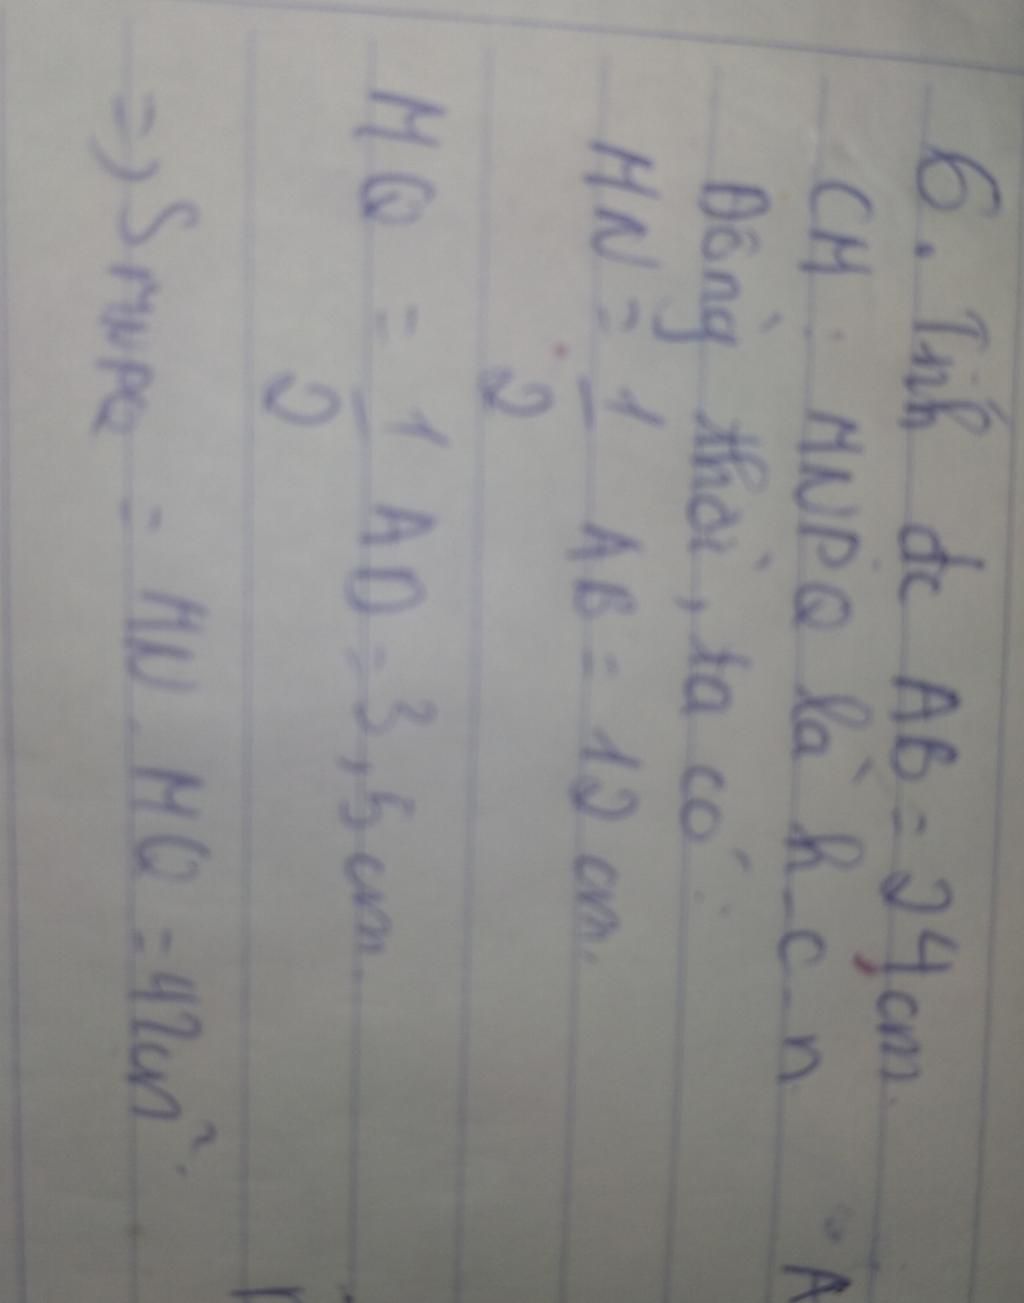 6. Tính đc AB = 24cm
CM: MNPQ là h-c-n
Đồng thời, ta có:
MN = 1/2 AB = 12 cm.
MQ = 1/2 AD = 3,5 cm.
=) SMNPQ = MN. MQ = 42cm².
A